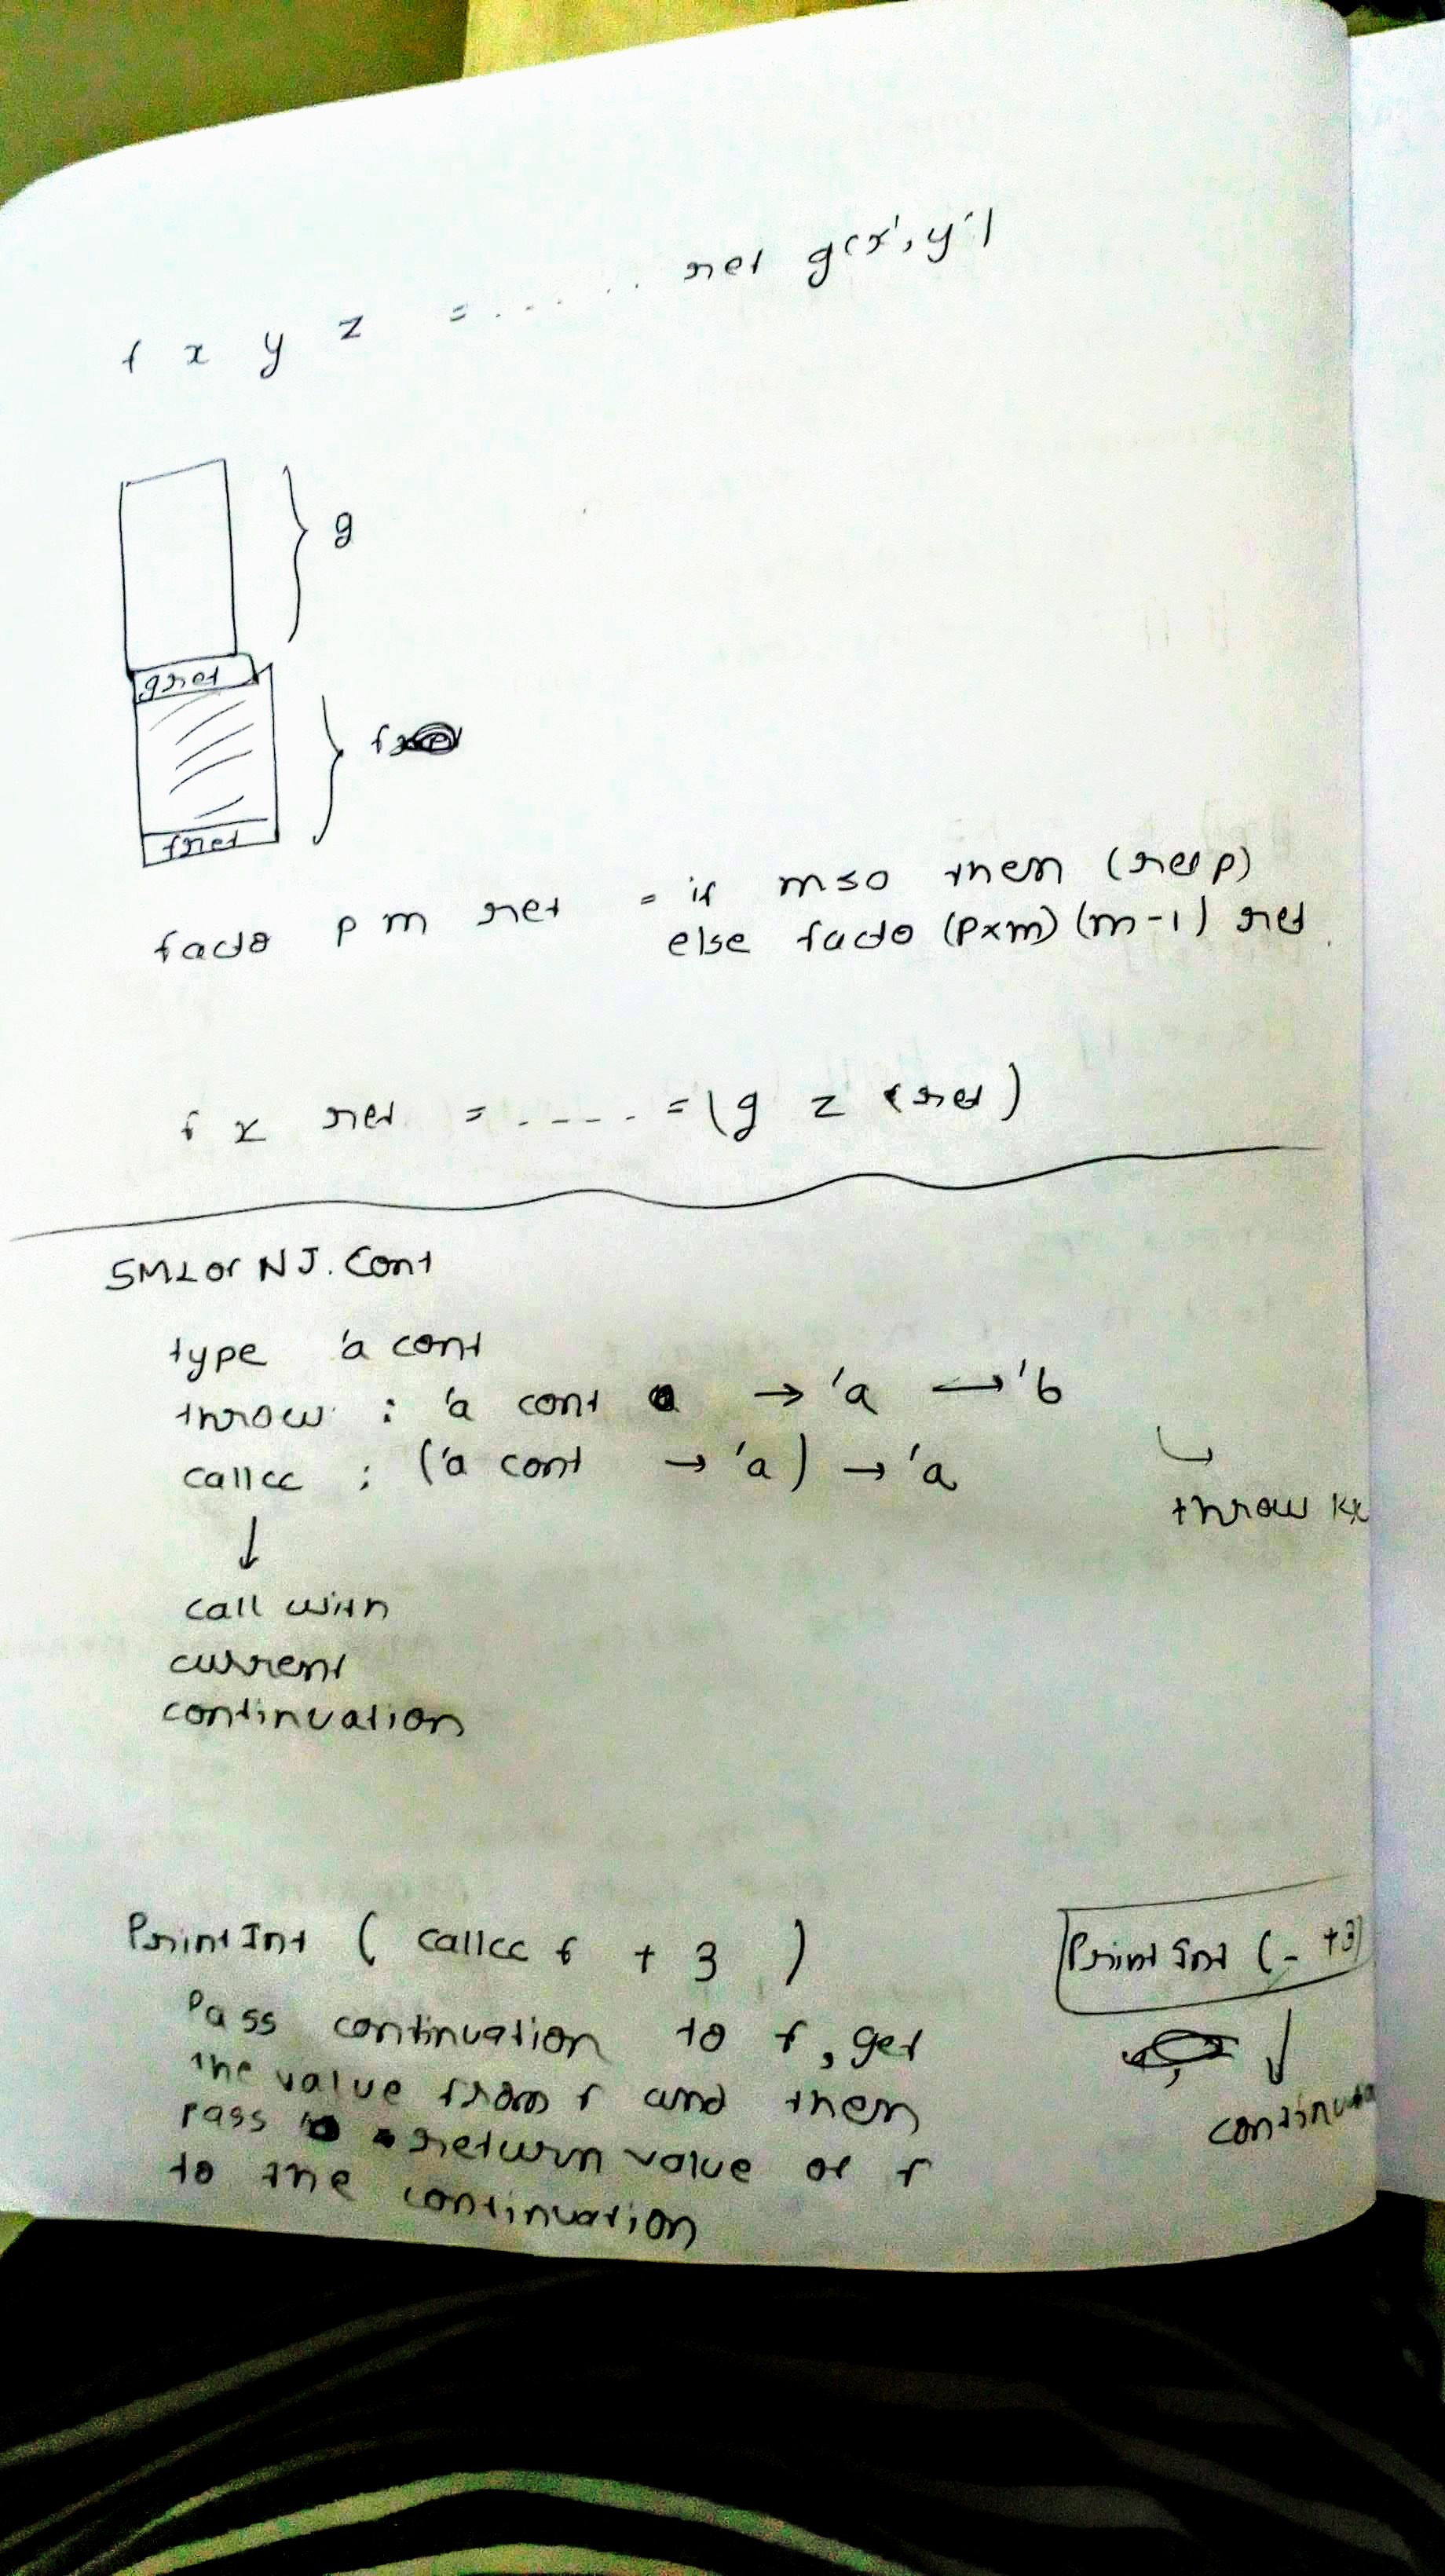 f x y z = ..... ret g(x', y')
g
gret
f
fret
facto p m ret = if m≤0 then (ret p)
else facto (p×m) (m-1) ret
f x ret = .---. = (g z (ret)
SML of NJ. Cont
type 'a cont
throw : 'a cont → 'a → 'b
callcc : ('a cont → 'a) → 'a
throw k
↓
call with
current
continuation
PrintInt ( callcc f + 3 )
Print Int (- +3)
Pass continuation to f, get
the value from f and then
pass return value of f
to the continuation
continua